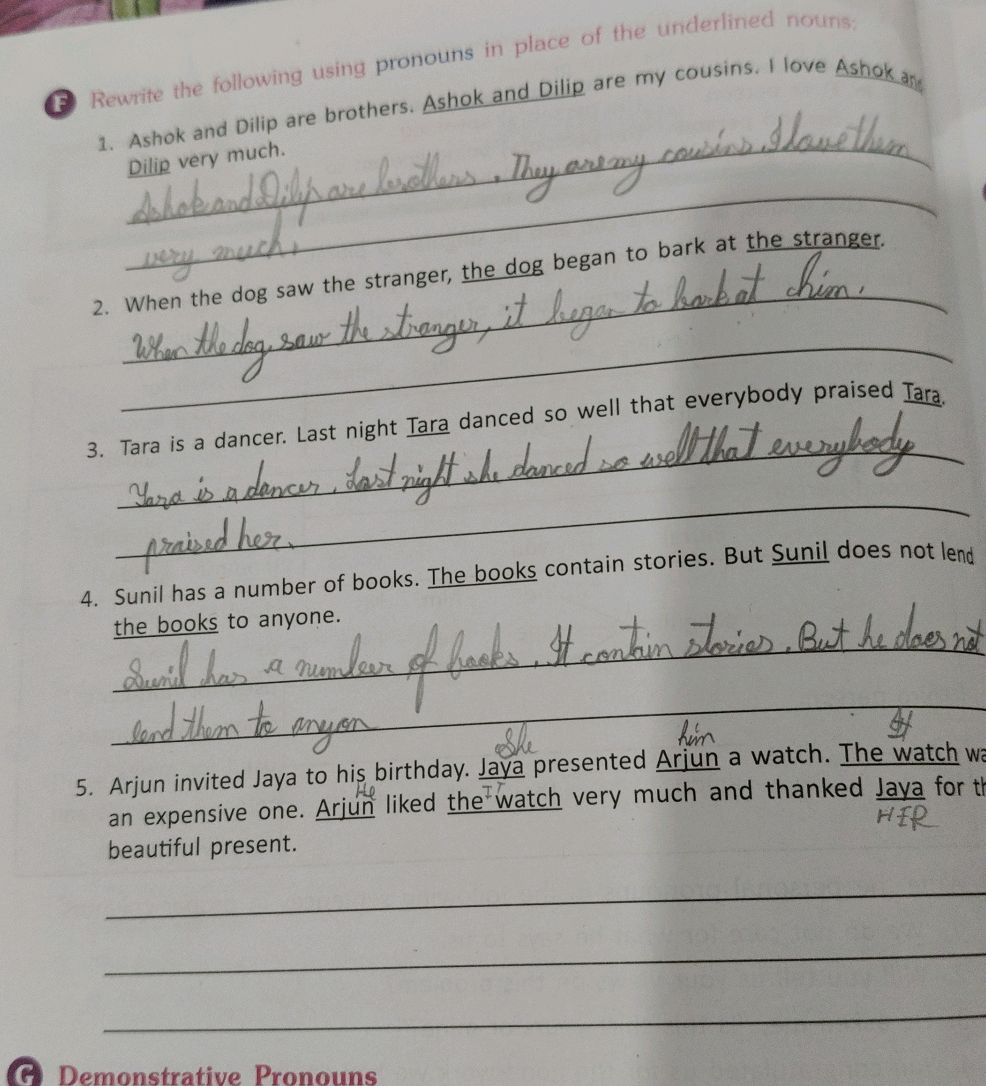 F Rewrite the following using pronouns in place of the underlined nouns:
1. Ashok and Dilip are brothers. Ashok and Dilip are my cousins. I love Ashok and
Dilip very much.
Ashok and Dilip are brothers. They are my cousins. I love them
very much.
2. When the dog saw the stranger, the dog began to bark at the stranger.
When the dog saw the stranger, it began to bark at him.
3. Tara is a dancer. Last night Tara danced so well that everybody praised Tara.
Tara is a dancer. Last night she danced so well that everybody
praised her.
4. Sunil has a number of books. The books contain stories. But Sunil does not lend
the books to anyone.
Sunil has a number of books. It contain stories. But he does not
lend them to anyon
She him It
5. Arjun invited Jaya to his birthday. Jaya presented Arjun a watch. The watch wa
He IT
an expensive one. Arjun liked the watch very much and thanked Jaya for th
HER
beautiful present.
G Demonstrative Pronouns